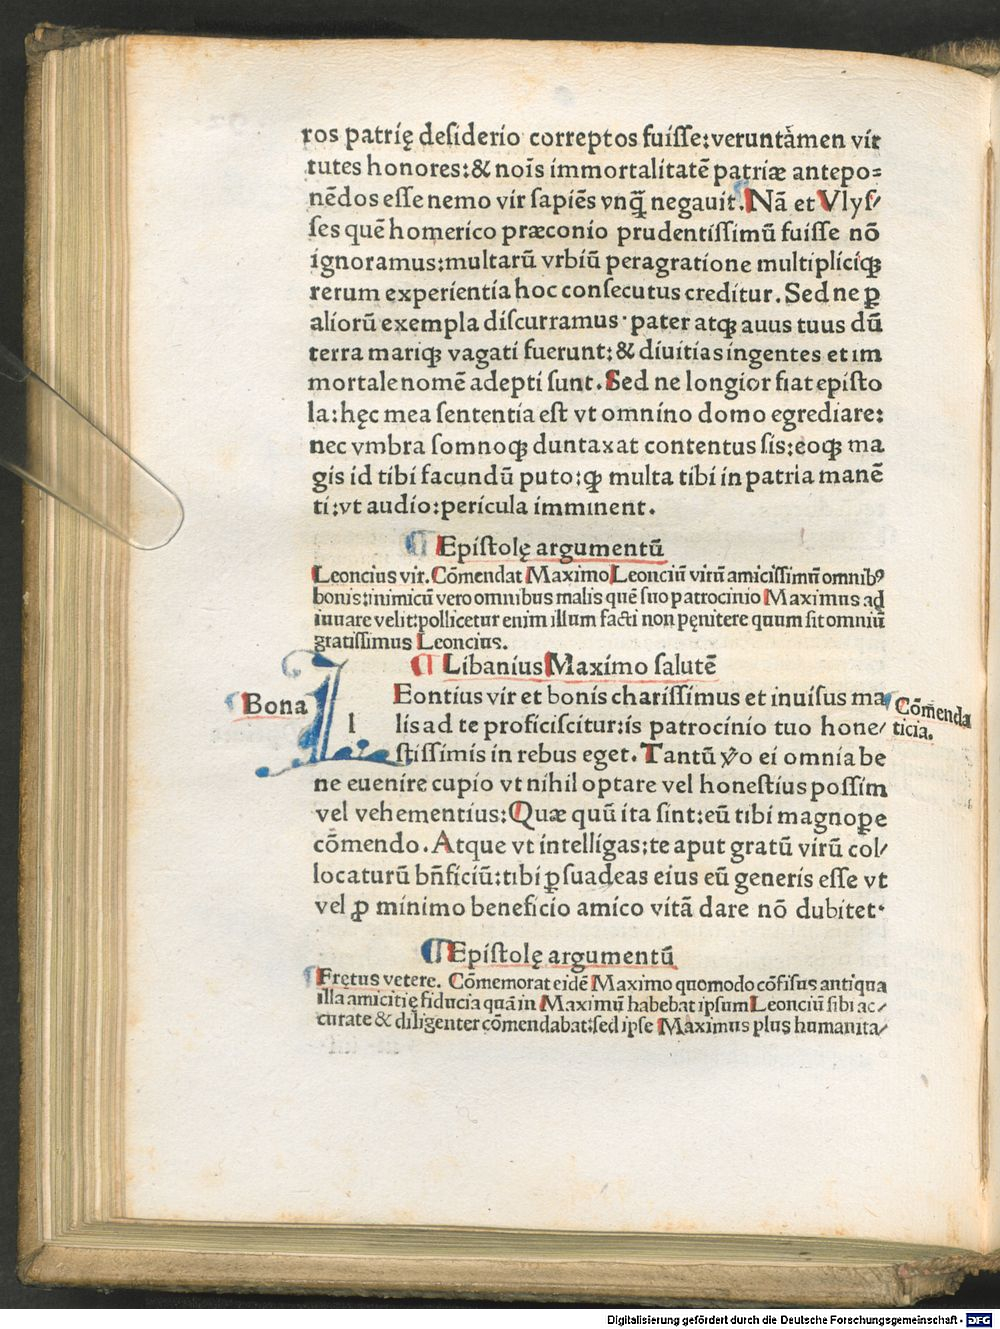 ros patrię desiderio correptos fuisse:veruntamen vir
tutes honores:& noīs immortalitatē patriæ antepo=
nēdos esse nemo vir sapiēs vnqꝫ negauit. Nā et Vlys/
ses quē homerico præconio prudentissimū fuisse nō
ignoramus:multarū vrbiū peragratione multipliciqꝫ
rerum experientia hoc consecutus creditur. Sed ne ꝑ
aliorū exempla discurramus· pater atqꝫ auus tuus dū
terra mariqꝫ vagati fuerunt: & diuitias ingentes et im
mortale nomē adepti sunt. Sed ne longior fiat episto
la:hęc mea sententia est vt omnino domo egrediare:
nec vmbra somnoqꝫ duntaxat contentus sis:eoqꝫ ma
gis id tibi facundū puto:qꝫ multa tibi in patria manē
ti:vt audio:pericula imminent.
¶ Epistolę argumentū
Leoncius vir. Cōmendat Maximo Leonciū virū amicissimū omnibꝰ
bonis:inimicū vero omnibus malis quē suo patrocinio Maximus ad
iuuare velit:pollicetur enim illum facti non pęnitere quum sit omniū
gratissimus Leoncius.
¶ Libanius Maximo salutē
Bona
l
Eontius vir et bonis charissimus et inuisus ma
Cōmenda
lis ad te proficiscitur:is patrocinio tuo hone/
ticia.
stissimis in rebus eget. Tantū ꝟo ei omnia be
ne euenire cupio vt nihil optare vel honestius possim
vel vehementius: Quæ quū ita sint:eū tibi magnoꝑe
cōmendo. Atque vt intelligas:te aput gratū virū col/
locaturū bn̄ficiū:tibi ꝑsuadeas eius eū generis esse vt
vel ꝓ minimo beneficio amico vitā dare nō dubitet·
¶ Epistolę argumentū
Fretus vetere. Cōmemorat eidē Maximo quomodo cōfisus antiqua
illa amicitię fiducia quā in Maximū habebat ipsum Leonciū sibi ac/
curate & diligenter cōmendabat:sed ipse Maximus plus humanita/
Digitalisierung gefördert durch die Deutsche Forschungsgemeinschaft - DFG